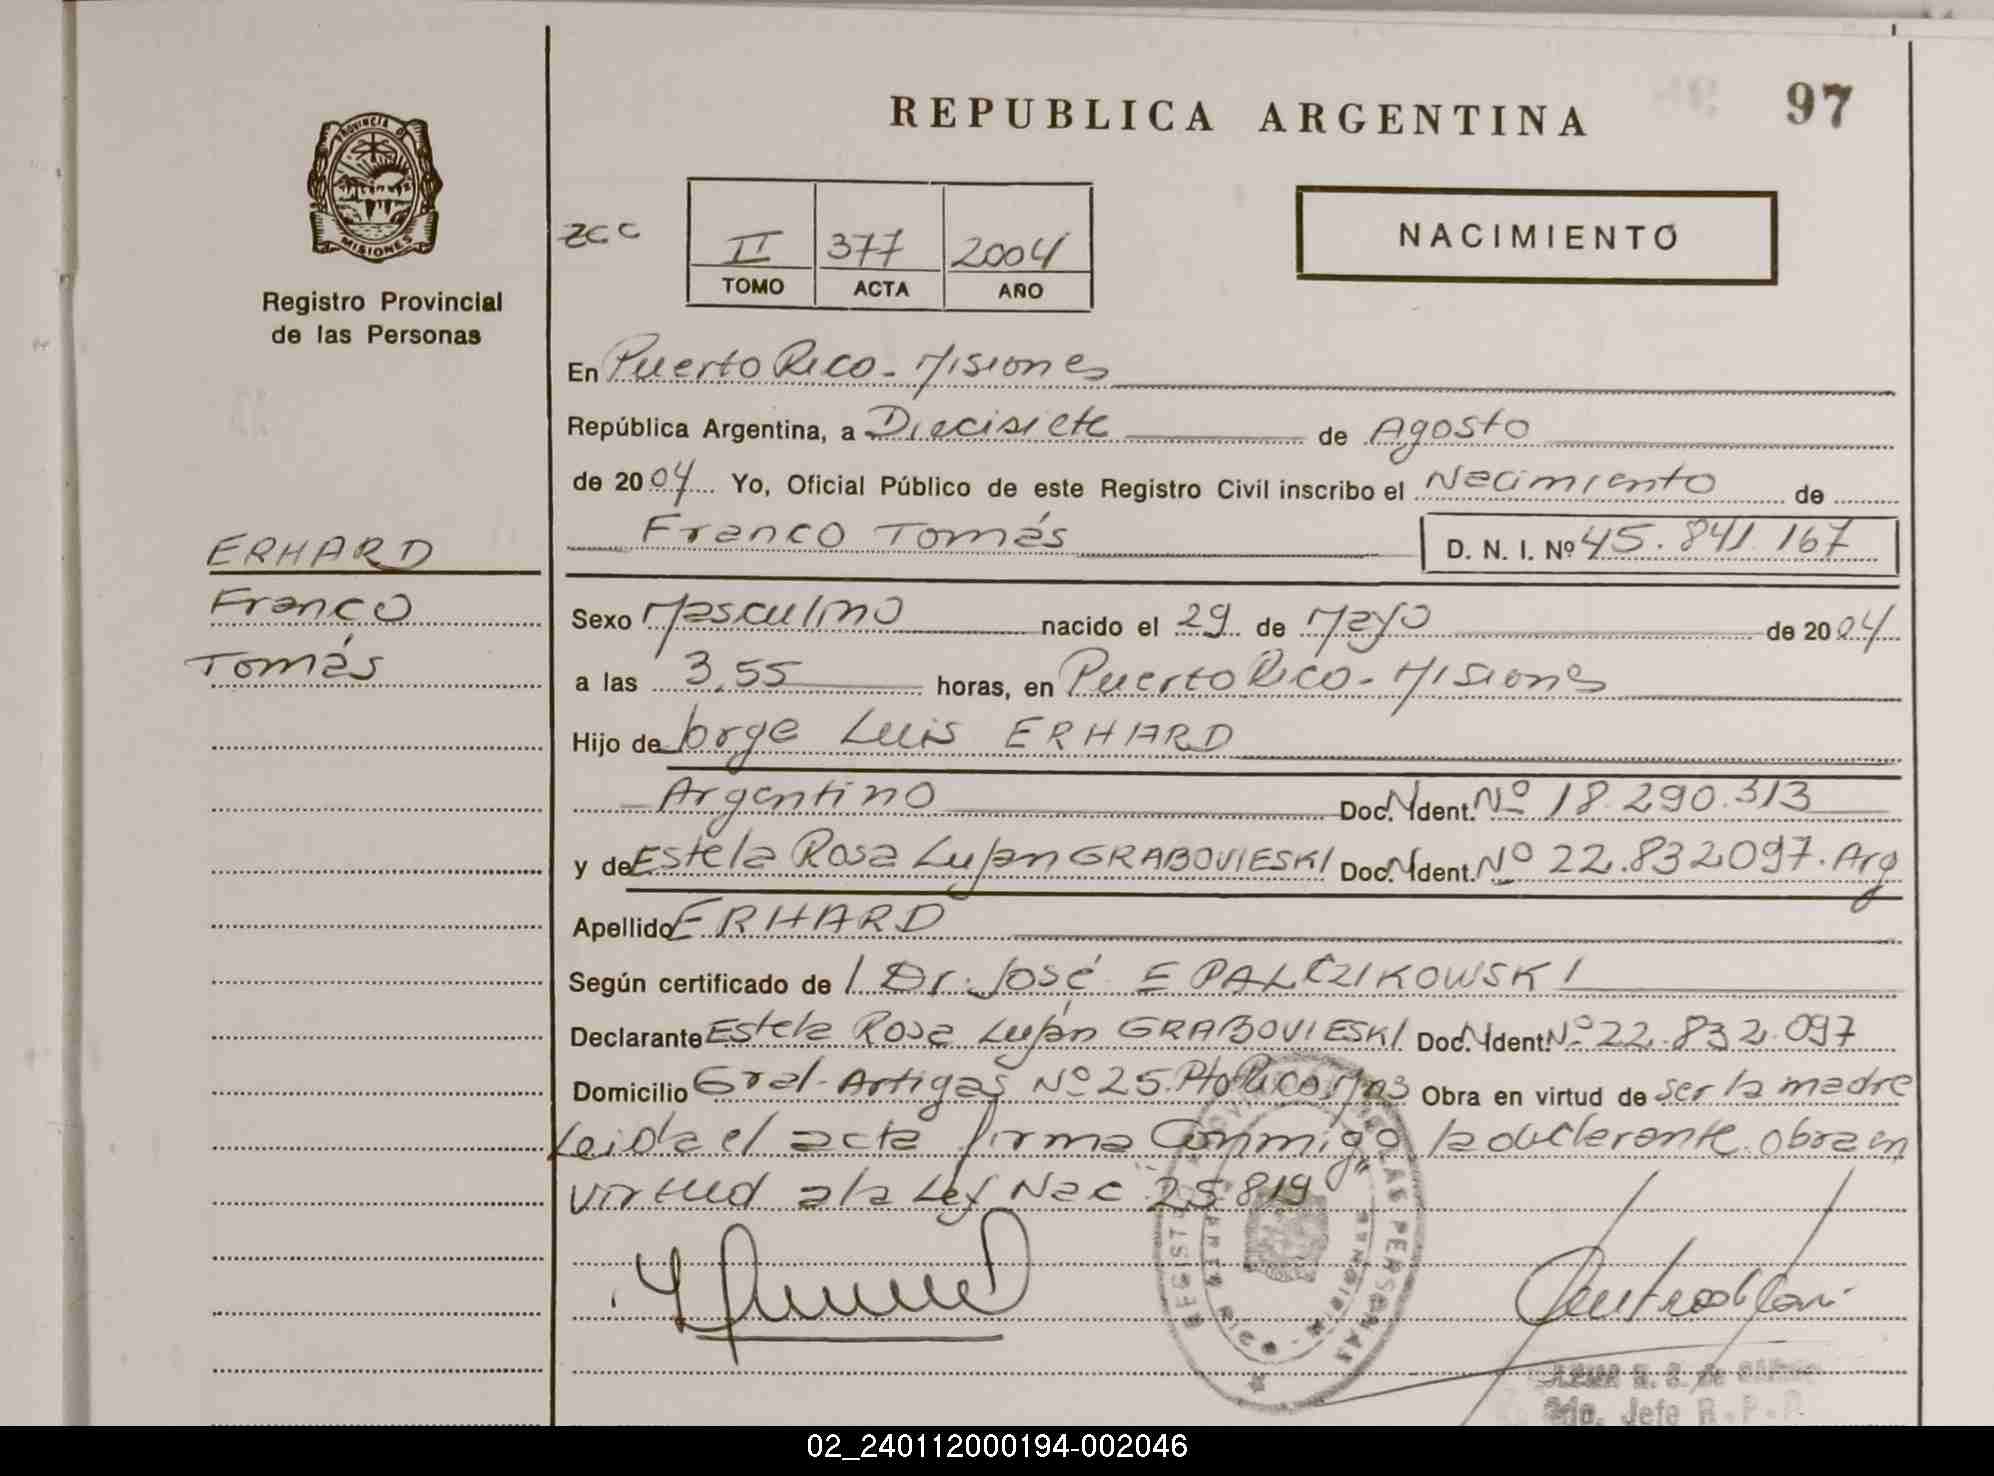 REPUBLICA ARGENTINA
97
PROVINCIA DE
MISIONES
Registro Provincial
de las Personas
zcc
II 377 2004
TOMO ACTA AÑO
NACIMIENTO
En Puerto Rico - Misiones
República Argentina, a Diecisiete de Agosto
de 2004 Yo, Oficial Público de este Registro Civil inscribo el Nacimiento de
Franco Tomás D. N. I. Nº 45.841.167
ERHARD
Franco
Tomás
Sexo Masculino nacido el 29 de Mayo de 2004
a las 3,55 horas, en Puerto Rico - Misiones
Hijo de Jorge Luis ERHARD
Argentino Doc. N Ident. Nº 18.290.313
y de Estela Rosa Lujan GRABOVIESKI Doc. N Ident. Nº 22.832097. Arg
Apellido ERHARD
Según certificado de / Dr. José E
Declarante Estela Rosa Luján GRABOVIESKI Doc. N Ident. Nº 22.832.097
Domicilio Gral. Artigas Nº 25. Pto Rico Mns Obra en virtud de ser la madre
Leida el acta firma Conmigo la declarante. obra en
virtud a la Ley Nac 25819
REGISTRO PROVINCIAL DE LAS PERSONAS
PUERTO RICO - MISIONES
de
Jefe R.P.P.
02_240112000194-002046